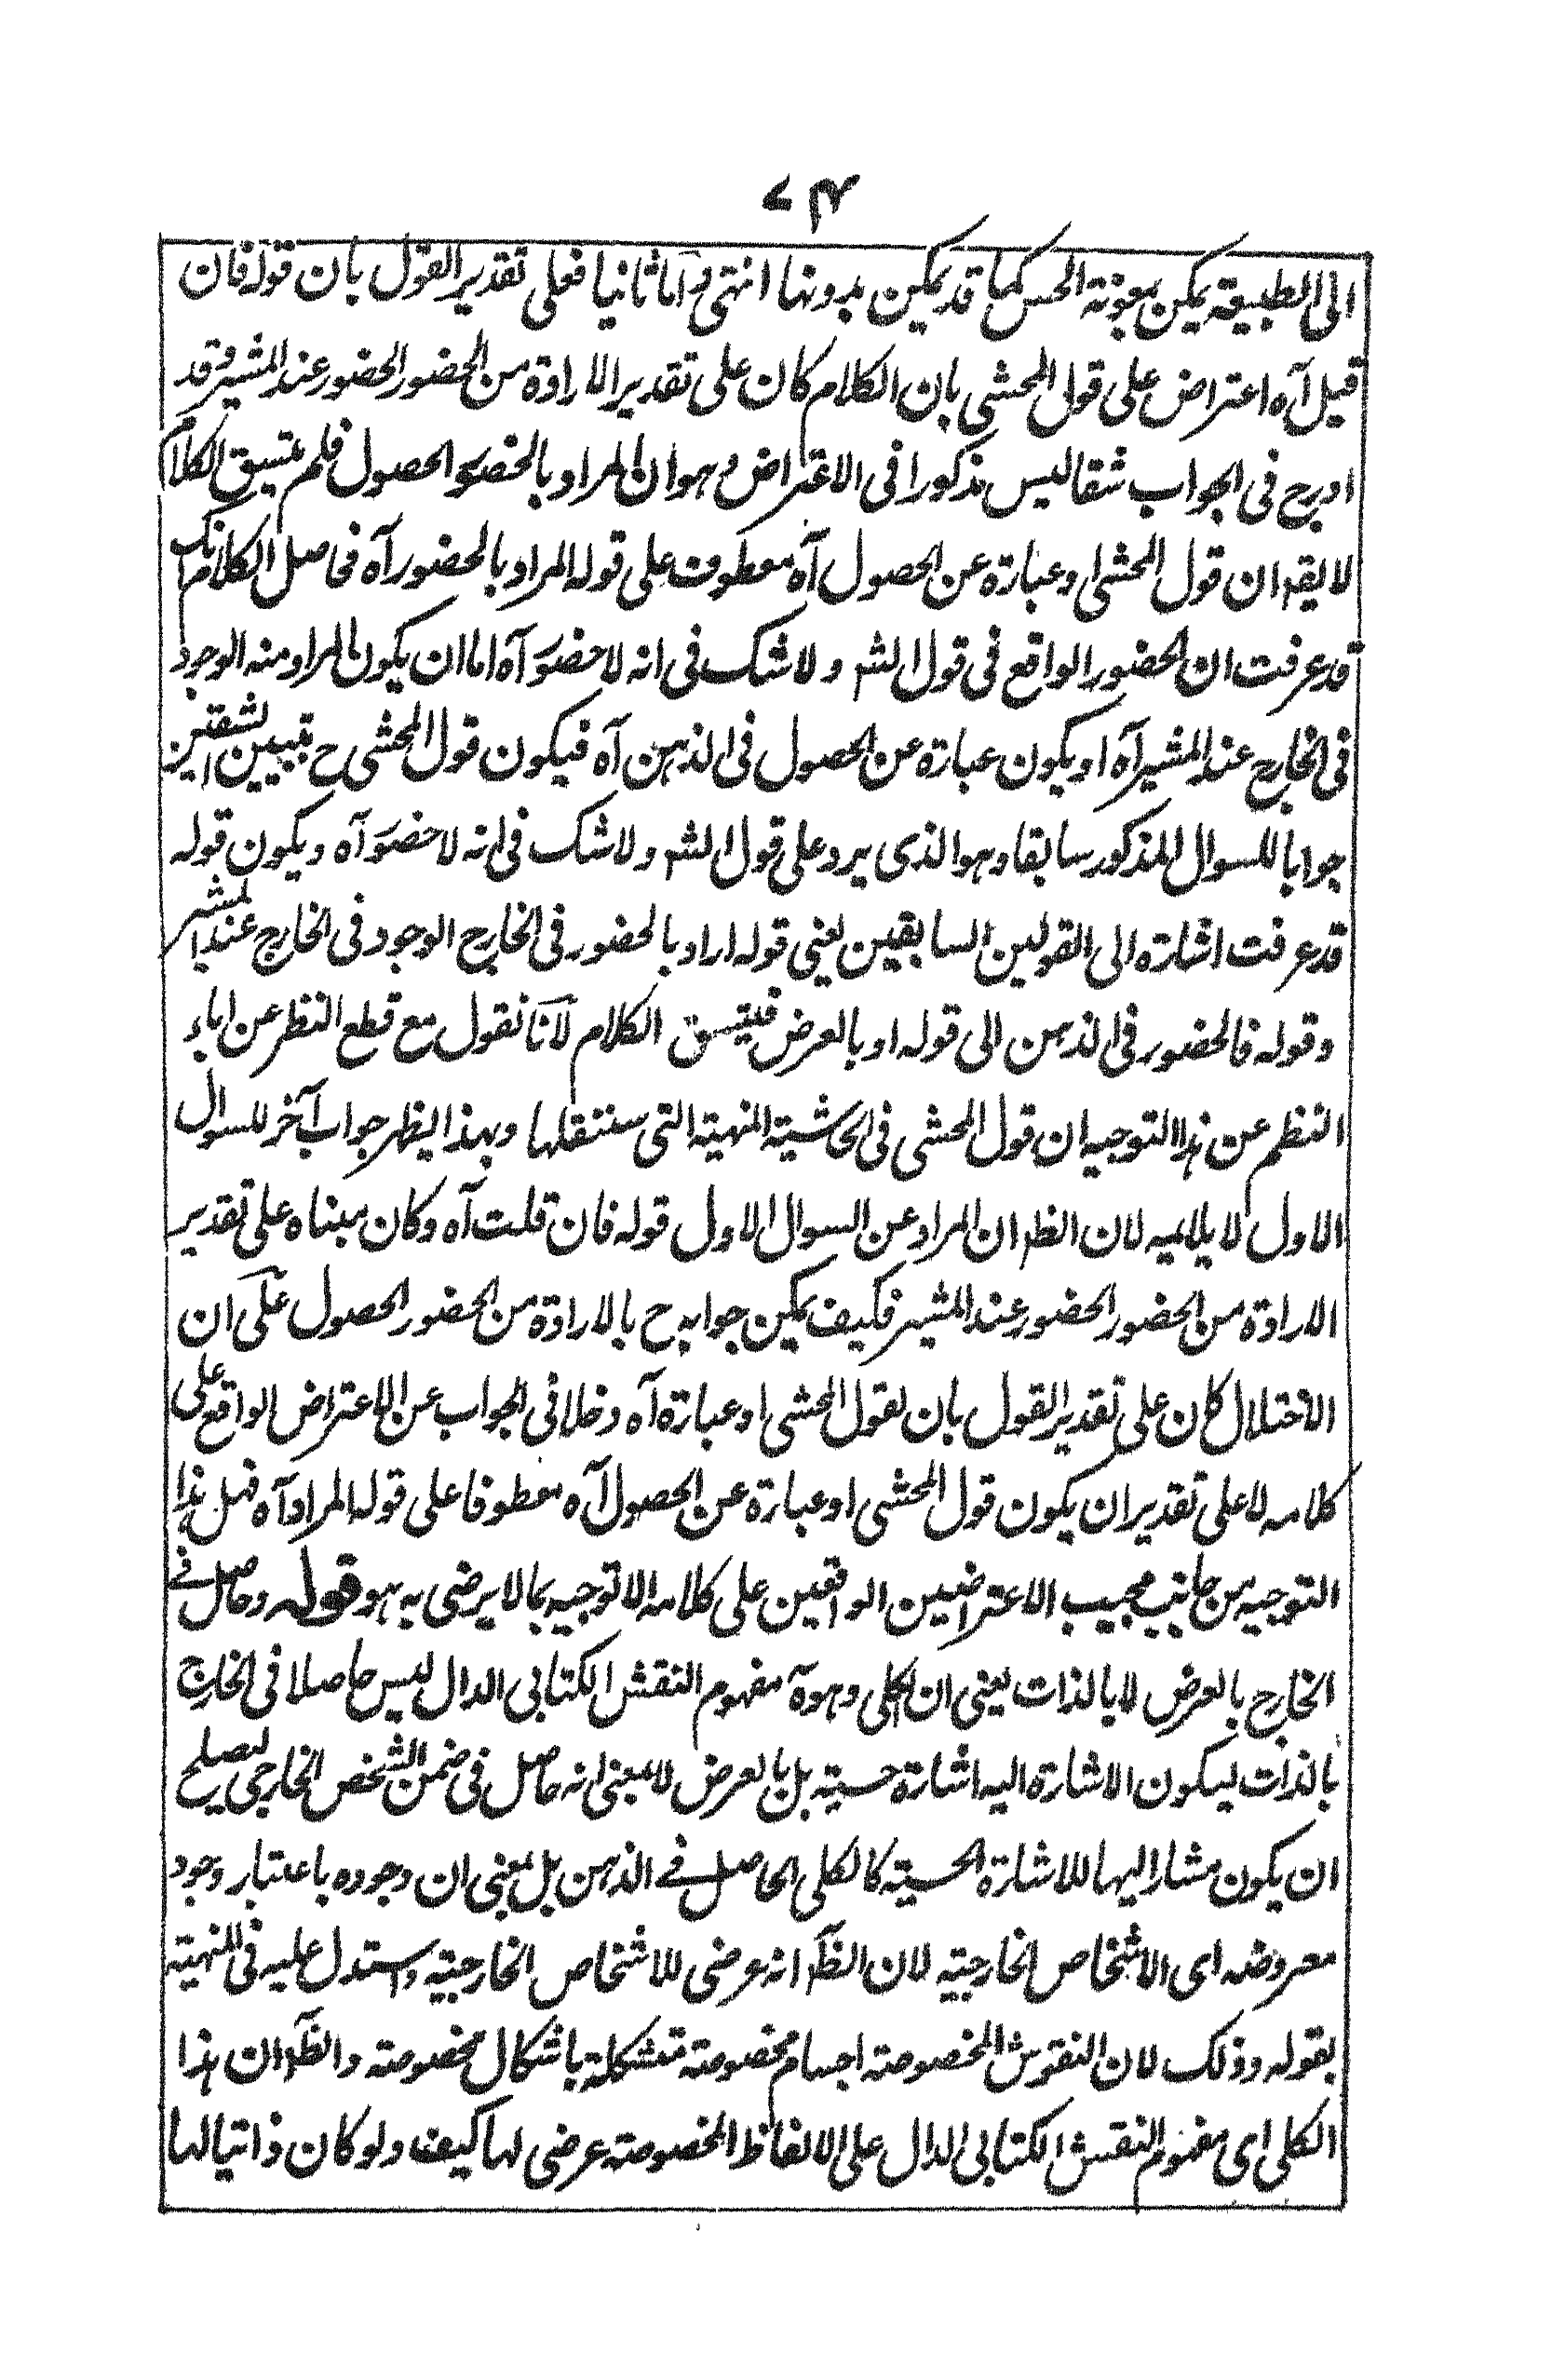 ۷۴
الى الطبيعة يمكن بمعونة الحس كما قد يمكن بدونها انتهى واما ثانيا فعلى تقدير القول بان قوله فان
قيل آه اعتراض على قول المحشى بان الكلام كان على تقدير الارادة من الحضور الحضور عند المشير وقد
ادرج فى الجواب شقا ليس مذكورا فى الاعتراض وهو ان المراد بالحضور الحصول فلم يتسق الكلام
لا يقم ان قول المحشى او عبارة عن الحصول آه معطوف على قوله المراد بالحضور آه فحاصل الكلام انك
قد عرفت ان الحضور الواقع فى قول الشم ولا شك فى انه لا حضور آه اما ان يكون المراد منه الوجود
فى الخارج عند المشير آه او يكون عبارة عن الحصول فى الذهن آه فيكون قول المحشى ح بتبيين الشقين
جوابا للسوال المذكور سابقا وهو الذى يرد على قول الشم ولا شك فى انه لا حضور آه ويكون قوله
قد عرفت اشارة الى القولين السابقين يعنى قوله اراد بالحضور فى الخارج الوجود فى الخارج عند المشير
وقوله فالحضور فى الذهن الى قوله او بالعرض فيتسق الكلام لانا نقول مع قطع النظر عن اباء
النظم عن هذا التوجيه ان قول المحشى فى الحاشية المنهية التى سننقلها وبهذا يظهر جواب آخر للسوال
الاول لا يلايمه لان الظم ان المراد عن السوال الاول قوله فان قلت آه وكان مبناه على تقدير
الارادة من الحضور الحضور عند المشير فكيف يمكن جوابه ح بالارادة من الحضور الحصول على ان
الاختلال كان على تقدير القول بان لقول المحشى او عبارة آه دخلا فى الجواب عن الاعتراض الواقع على
كلامه لا على تقدير ان يكون قول المحشى او عبارة عن الحصول آه معطوفا على قوله المراد آه فهل هذا
التوجيه من جانب مجيب الاعتراضين الواقعين على كلامه الا توجيه بما لا يرضى به هو قوله وحاصل فى
الخارج بالعرض لا بالذات يعنى ان الكلى وهوة مفهوم النقش الكتابى الدال ليس حاصلا فى الخارج
بالذات ليكون الاشارة اليه اشارة حسية بل بالعرض لا بمعنى انه حاصل فى ضمن الشخص الخارجى ليصلح
ان يكون مشارا اليها للاشارة الحسية كالكلى الحاصل فى الذهن بل بمعنى ان وجوده باعتبار وجود
معروضه اى الاشخاص الخارجية لان الظم انه عرضى للاشخاص الخارجية واستدل عليه فى المنهية
بقوله وذلك لان النقوش المخصوصة اجسام مخصوصة متشكلة باشكال مخصوصة والظم ان هذا
الكلى اى مفهوم النقش الكتابى الدال على الالفاظ المخصوصة عرضى لها كيف ولو كان ذاتيا لها